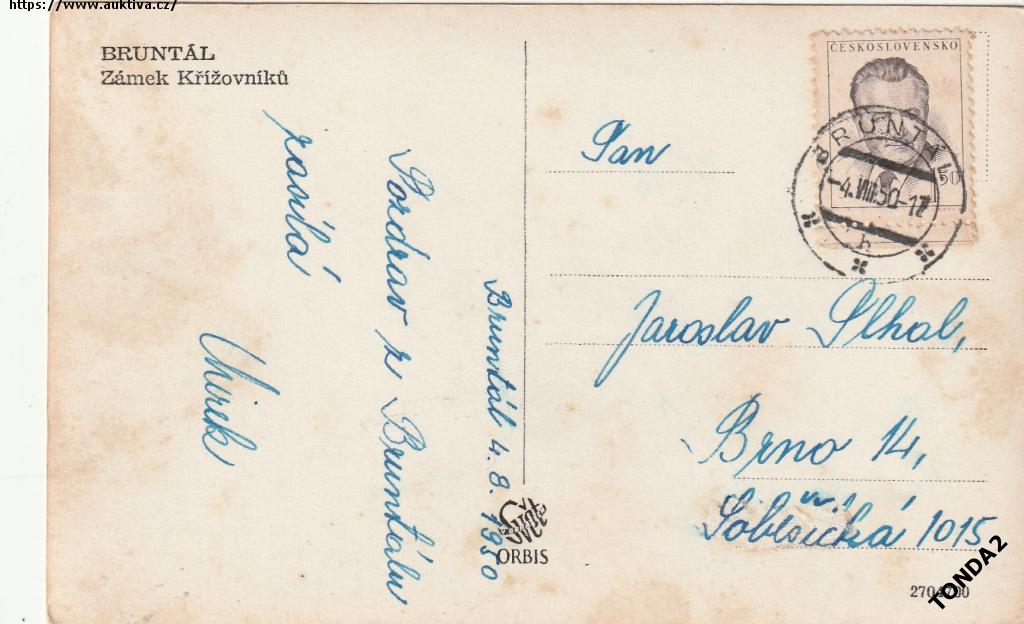 https://www.auktiva.cz/
BRUNTÁL
Zámek Křížovníků
Bruntál 4. 8. 1950
Pozdrav z Bruntálu
zasílá
Mirek
ORBIS
ČESKOSLOVENSKO
50
BRUNTÁL
-4.VIII.50-17
h
Pan
Jaroslav Plhal,
Brno 14,
Soběšická 1015
TONDA2